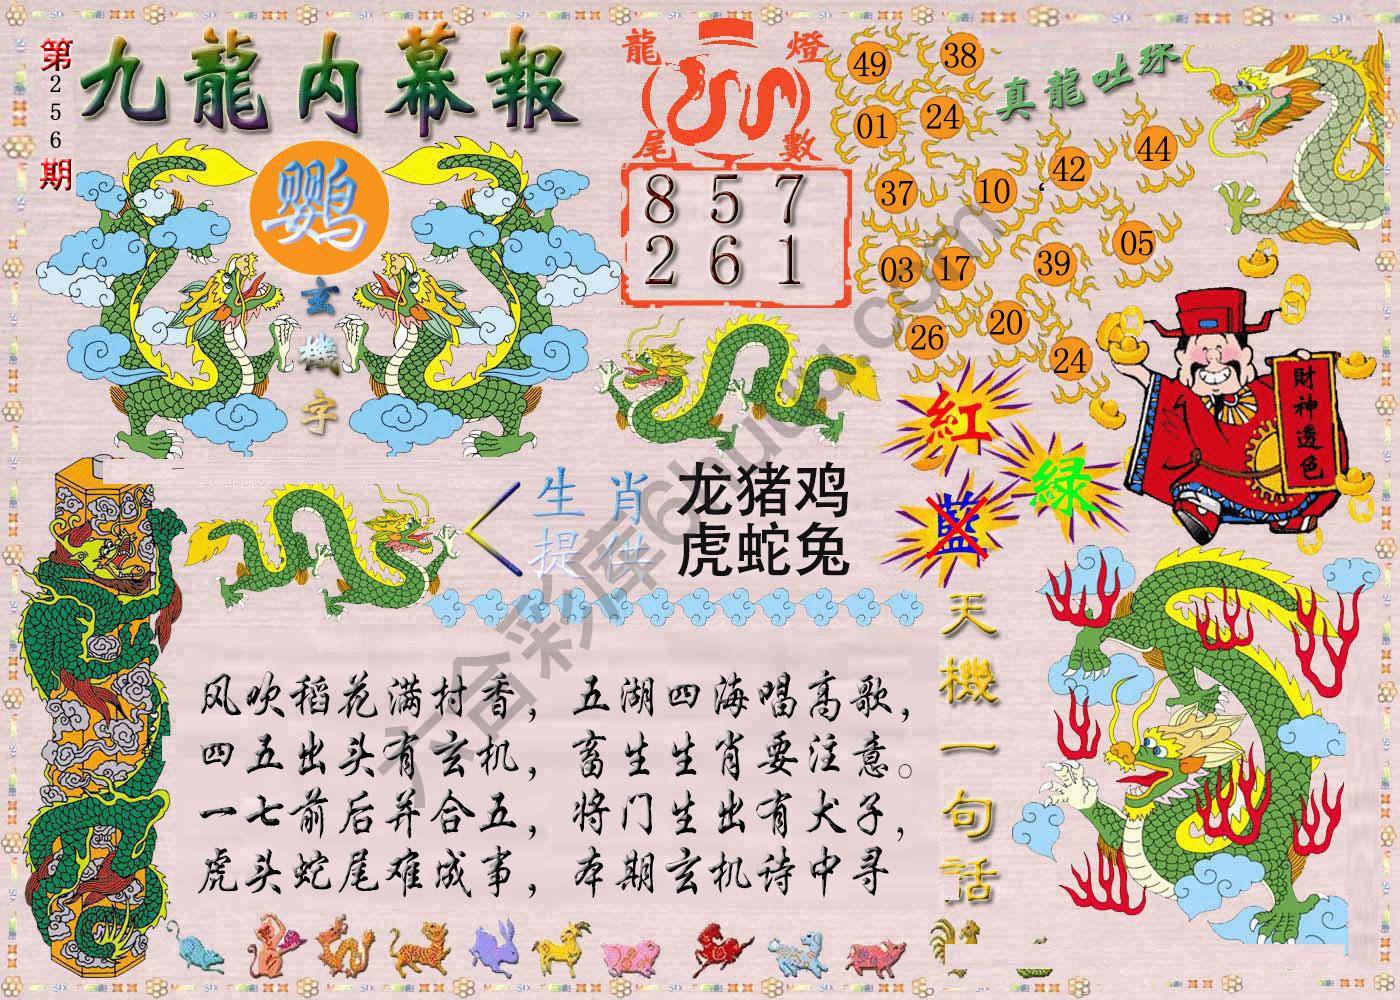 第256期
九龍内幕報
鹦
玄機字
龍燈尾數
8 5 7
2 6 1
真龍吐珠
49
38
01
24
42
44
37
10
05
03
17
39
26
20
24
財神透色
紅
绿
藍
生肖
提供
龙猪鸡
虎蛇兔
天機一句話
风吹稻花满村香，五湖四海唱高歌，
四五出头有玄机，畜生生肖要注意。
一七前后并合五，将门生出有犬子，
虎头蛇尾难成事，本期玄机诗中寻